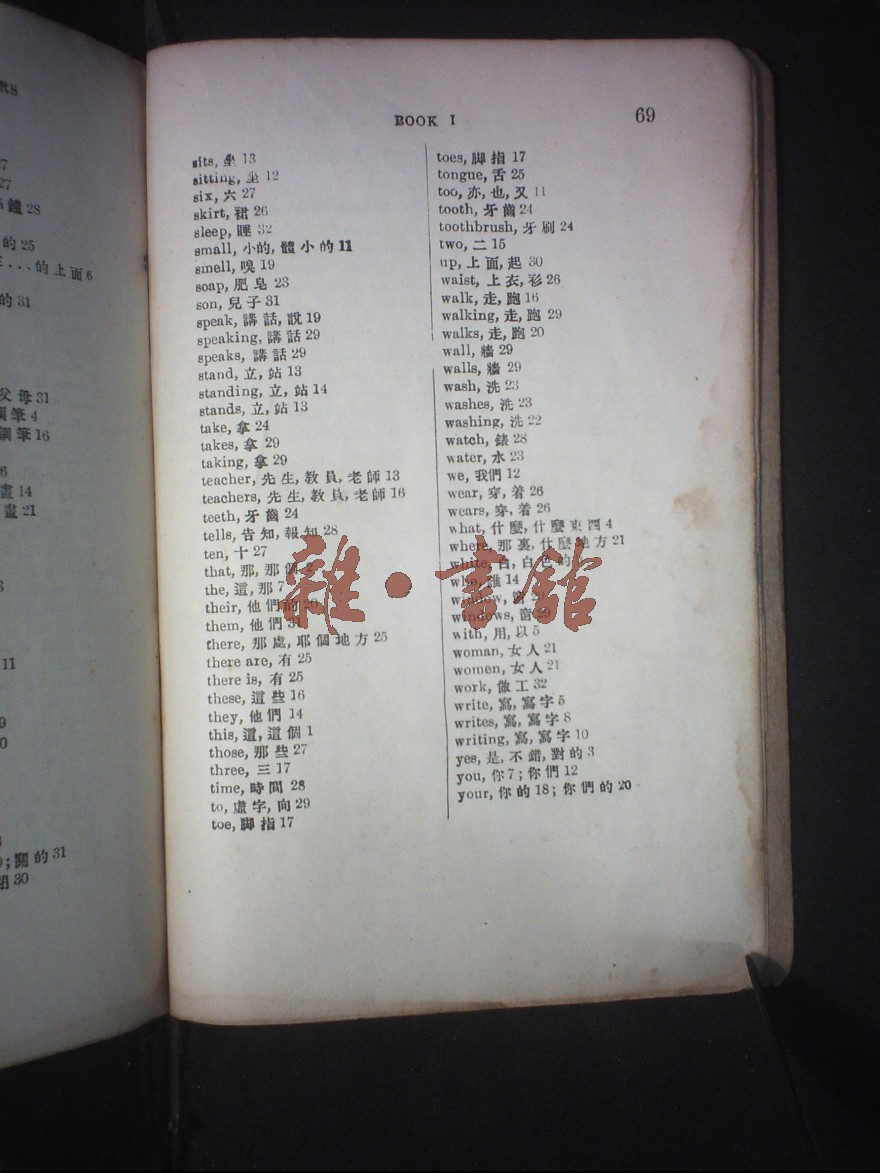 RS
27
27
鐘 28
的 25
...的上面 6
的 31
父母 31
筆 4
鋼筆 16
6
畫 14
畫 21
3
11
9
0
; 關的 31
閉 30
BOOK I
69
sits, 坐 13
sitting, 坐 12
six, 六 27
skirt, 裙 26
sleep, 睡 32
small, 小的, 體小的 11
smell, 嗅 19
soap, 肥皂 23
son, 兒子 31
speak, 講話, 說 19
speaking, 講話 29
speaks, 講話 29
stand, 立, 站 13
standing, 立, 站 14
stands, 立, 站 13
take, 拿 24
takes, 拿 29
taking, 拿 29
teacher, 先生, 教員, 老師 13
teachers, 先生, 教員, 老師 16
teeth, 牙齒 24
tells, 告知, 報知 28
ten, 十 27
that, 那, 那個 2
the, 這, 那 7
their, 他們的 20
them, 他們 31
there, 那處, 耶個地方 25
there are, 有 25
there is, 有 25
these, 這些 16
they, 他們 14
this, 這, 這個 1
those, 那些 27
three, 三 17
time, 時間 28
to, 虛字, 向 29
toe, 脚指 17
toes, 脚指 17
tongue, 舌 25
too, 亦, 也, 又 11
tooth, 牙齒 24
toothbrush, 牙刷 24
two, 二 15
up, 上面, 起 30
waist, 上衣, 衫 26
walk, 走, 跑 16
walking, 走, 跑 29
walks, 走, 跑 20
wall, 牆 29
walls, 牆 29
wash, 洗 23
washes, 洗 23
washing, 洗 22
watch, 錶 28
water, 水 23
we, 我們 12
wear, 穿, 着 26
wears, 穿, 着 26
what, 什麼, 什麼東西 4
where, 那裏, 什麼地方 21
white, 白, 白色的
who, 誰 14
window, 窗
windows, 窗 29
with, 用, 以 5
woman, 女人 21
women, 女人 21
work, 做工 32
write, 寫, 寫字 5
writes, 寫, 寫字 8
writing, 寫, 寫字 10
yes, 是, 不錯, 對的 3
you, 你 7; 你們 12
your, 你的 18; 你們的 20
雜·書館